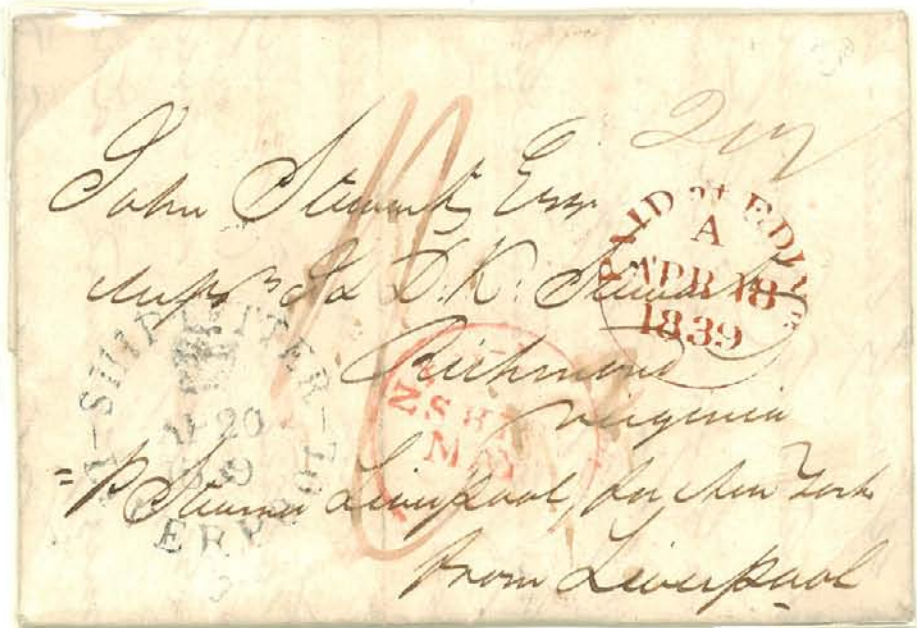 John Stewart, Esqr
Messrs J & D. K. Stewart
Richmond
Virginia
P Steamer Liverpool, for New York
from Liverpool
PAID at EDINr
A
APR 18
1839
SHIP LETTER
AP 20
1839
LIVERPOOL
MAY